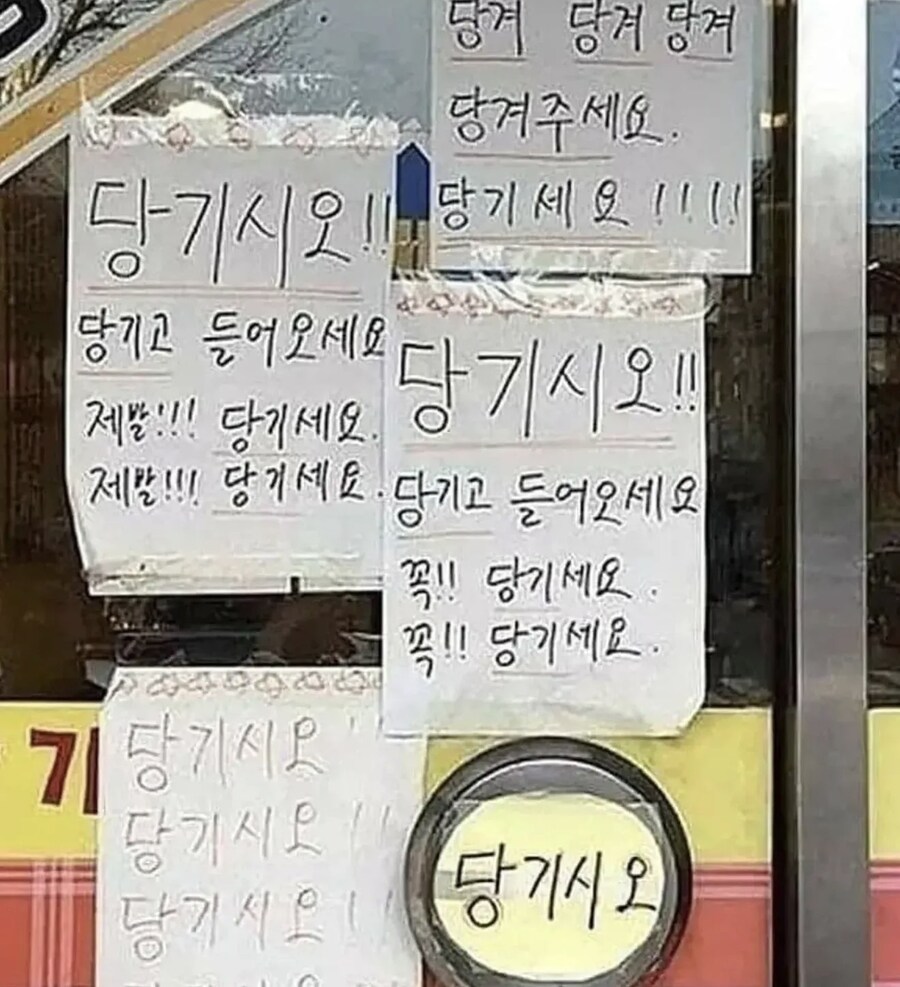 당겨 당겨 당겨
당겨주세요.
당기세요!!!!
당기시오!!
당기고 들어오세요
제발!!! 당기세요.
제발!!! 당기세요.
당기시오!!
당기고 들어오세요
꼭!! 당기세요.
꼭!! 당기세요.
당기시오!!
당기시오!!
당기시오!!
당기시오